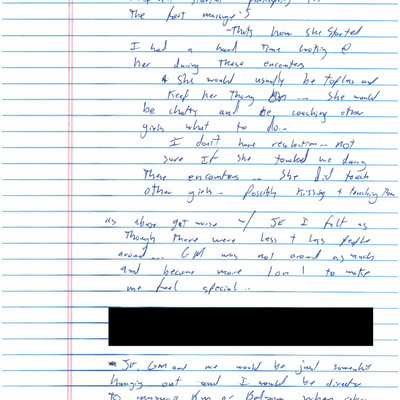 The foot massage's
- Thats how she started
I had a hard time looking @
her during these encounters
& She would usually be topless and
Keep her thong on... She would
be chatty and be coaching other
girls what to do..
I don't have recollection... not
sure If she touched me during
these encounters... She did touch
other girls.. possibly kissing + touching them
as abuse got worse w/ JE I felt as
Though There were less + less people
around... GM was not around as much
and became more 1 on 1 to make
me feel special..
JE, GM and me would be just
hanging out and I would be
To massage him or